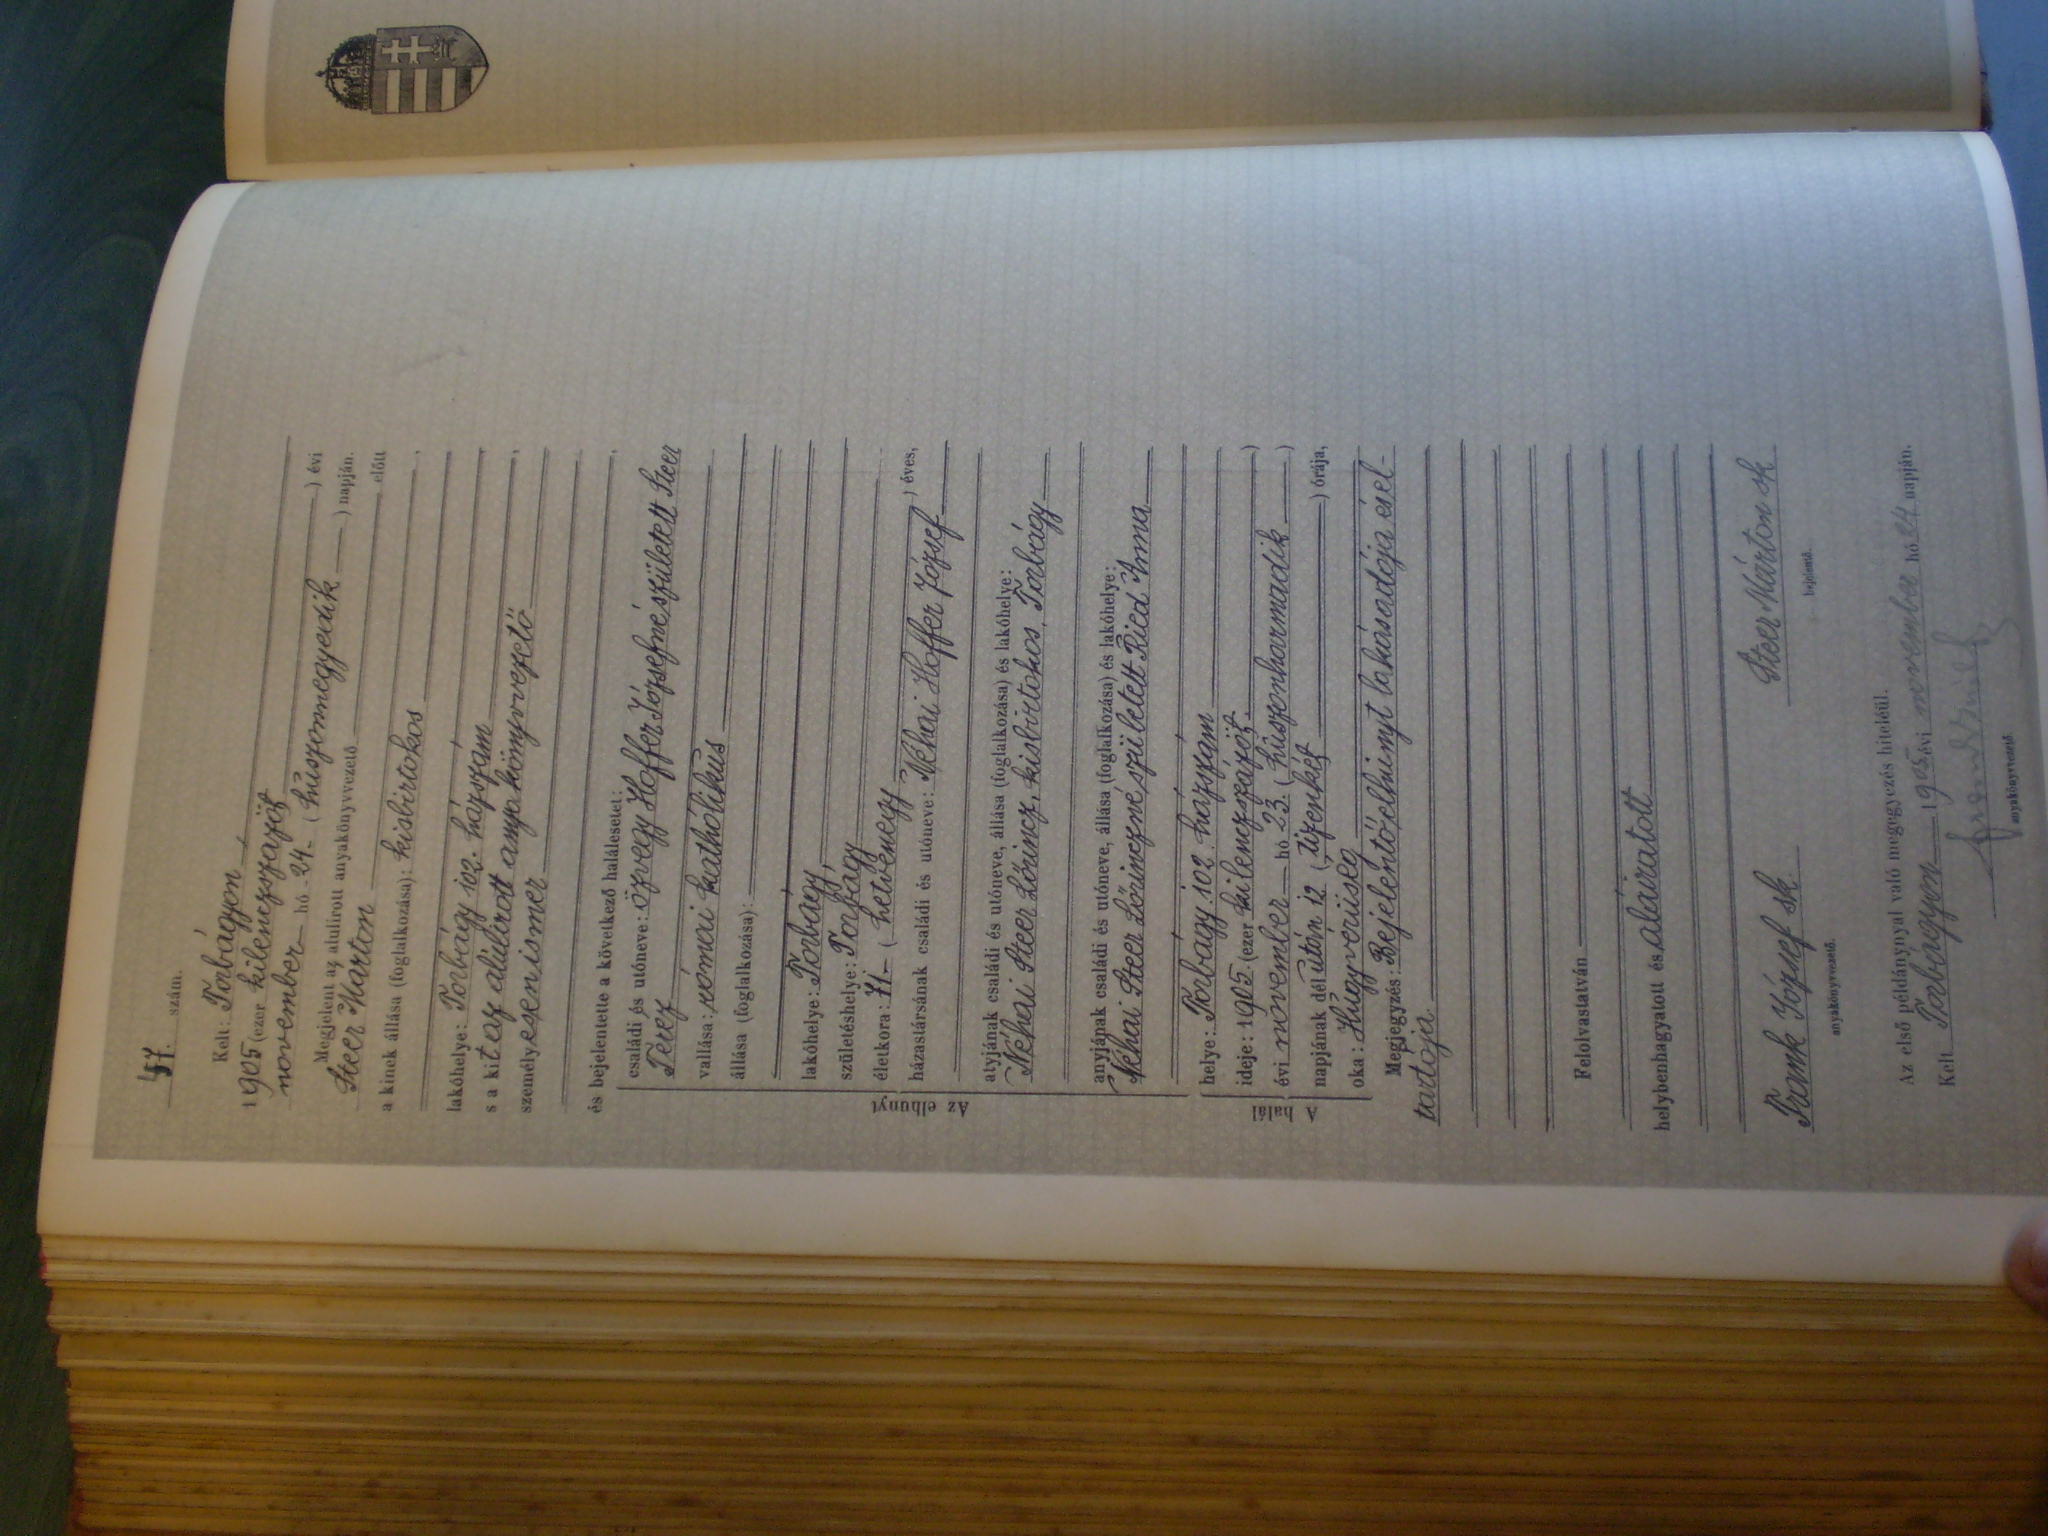 47. szám.
Kelt: Torbágyon,
1905 (ezer kilenczszázöt ) évi
november hó 24. (huszonnegyedik ) napján.
Megjelent az alulirott anyakönyvvezető előtt
Steer Márton
a kinek állása (foglalkozása): kisbirtokos
lakóhelye: Torbágy 102. házszám
s a kit az alúlirott anyakönyvvezető
személyesen ismer
és bejelentette a következő halálesetet:
Az elhunyt
családi és utóneve: özvegy Hoffer Józsefné született Steer
Teréz
vallása: római katholikus
állása (foglalkozása):
lakóhelye: Torbágy,
születéshelye: Torbágy,
életkora: 71. (hetvenegy ) éves,
házastársának családi és utóneve: Néhai Hoffer József
atyjának családi és utóneve, állása (foglalkozása) és lakóhelye:
Néhai Steer Lőrincz, kisbirtokos, Torbágy
anyjának családi és utóneve, állása (foglalkozása) és lakóhelye:
Néhai Steer Lőrinczné, született Ried Anna
A halál
helye: Torbágy 102. házszám
ideje: 1905. (ezer kilenczszázöt. )
évi november hó 23. (huszonharmadik )
napjának dél után 12 (tizenkét ) órája,
oka: Húgyvérüség
Megjegyzés: Bejelentő elhunyt lakásadója és el-
tartója.
Felolvastatván
helybenhagyatott és aláiratott
Frank József sk. Steer Márton sk
anyakönyvvezető. bejelentő.
Az első példánynyal való megegyezés hiteléül.
Kelt Torbágyon 1905. évi november hó 24 napján.
anyakönyvvezető.